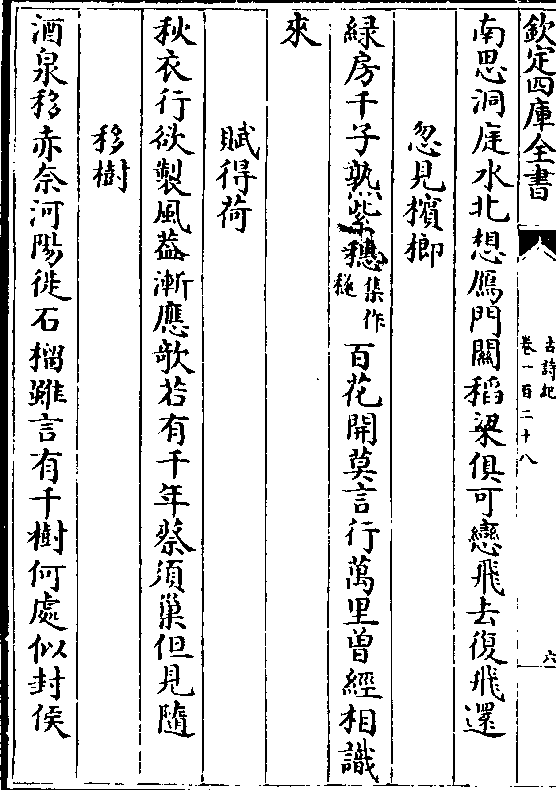 欽定四庫全書
古詩紀
卷一百二十八
六
南思洞庭水北想鴈門關稻粱俱可戀飛去復飛還
忽見檳榔
緑房千子熟紫穗集作穟百花開莫言行萬里曾經相識
來
賦得荷
秋衣行欲製風葢漸應欹若有千年蔡須巢但見隨
移樹
酒泉移赤奈河陽徙石榴雖言有千樹何處似封侯